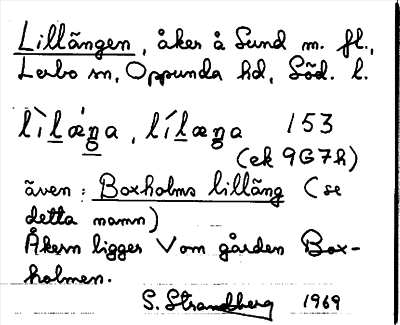 Lillängen, åker å Sund m. fl.,
Lerbo sn, Oppunda hd, Söd. l.
lìlæ̀ŋa, lílæŋa 153
(ek 9G7h)
även: Boxholms lilläng (se
detta namn)
Åkern ligger V om gården Box-
holmen.
S. Strandberg 1969